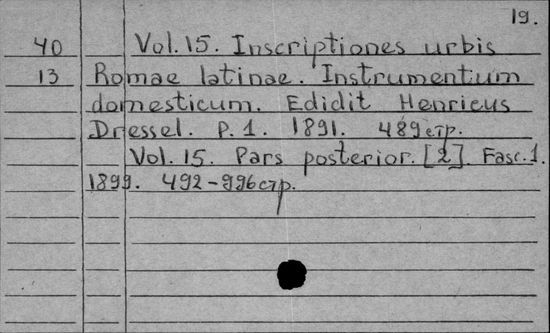 19.
40 Vol. 15. Inscriptiones urbis
13 Romae latinae. Instrumentum
domesticum. Edidit Henricus
Dressel. P. 1. 1891. 489 стр.
Vol. 15. Pars posterior. [2]. Fasc. 1.
1899. 492-996 стр.